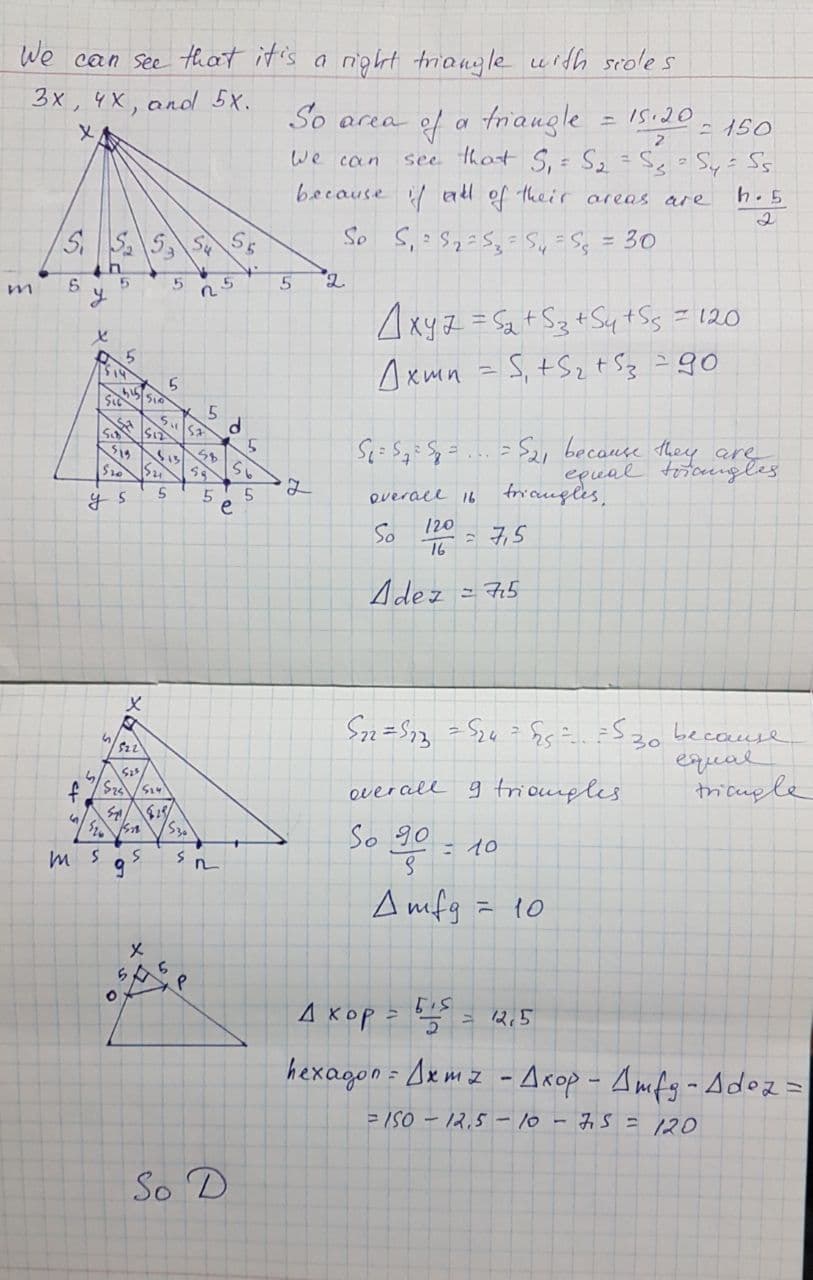 We can see that it's a right triangle with sides
3x, 4x, and 5x.
So area of a triangle = 15·20/2 = 150
We can see that S1 = S2 = S3 = S4 = S5
because if all of their areas are h·5/2
So S1 = S2 = S3 = S4 = S5 = 30
X
S1 S2 S3 S4 S5
m 5 y 5 5 n 5 5 z
Δxyz = S2 + S3 + S4 + S5 = 120
Δxmn = S1 + S2 + S3 = 90
x
5
S14 5
S16 S15 S10 5
S11 S7 d
S18 S12 5
S19 S13 S8
S20 S21 S9 S6
y 5 5 5 e 5 z
S6 = S7 = S8 = ... = S21 because they are
equal triangles
overall 16 triangles.
So 120/16 = 7,5
Δdez = 7,5
X
5 S22
5 S23
f S25 S24
5 S26 S27 S28 S29 S30
m 5 g 5 5 n
S22 = S23 = S24 = S25 = ... = S30 because
equal
overall 9 triangles triangle
So 90/9 = 10
Δmfg = 10
X
5 5
o p
Δxop = 5·5/2 = 12,5
hexagon = Δxmz - Δxop - Δmfg - Δdez =
= 150 - 12,5 - 10 - 7,5 = 120
So D